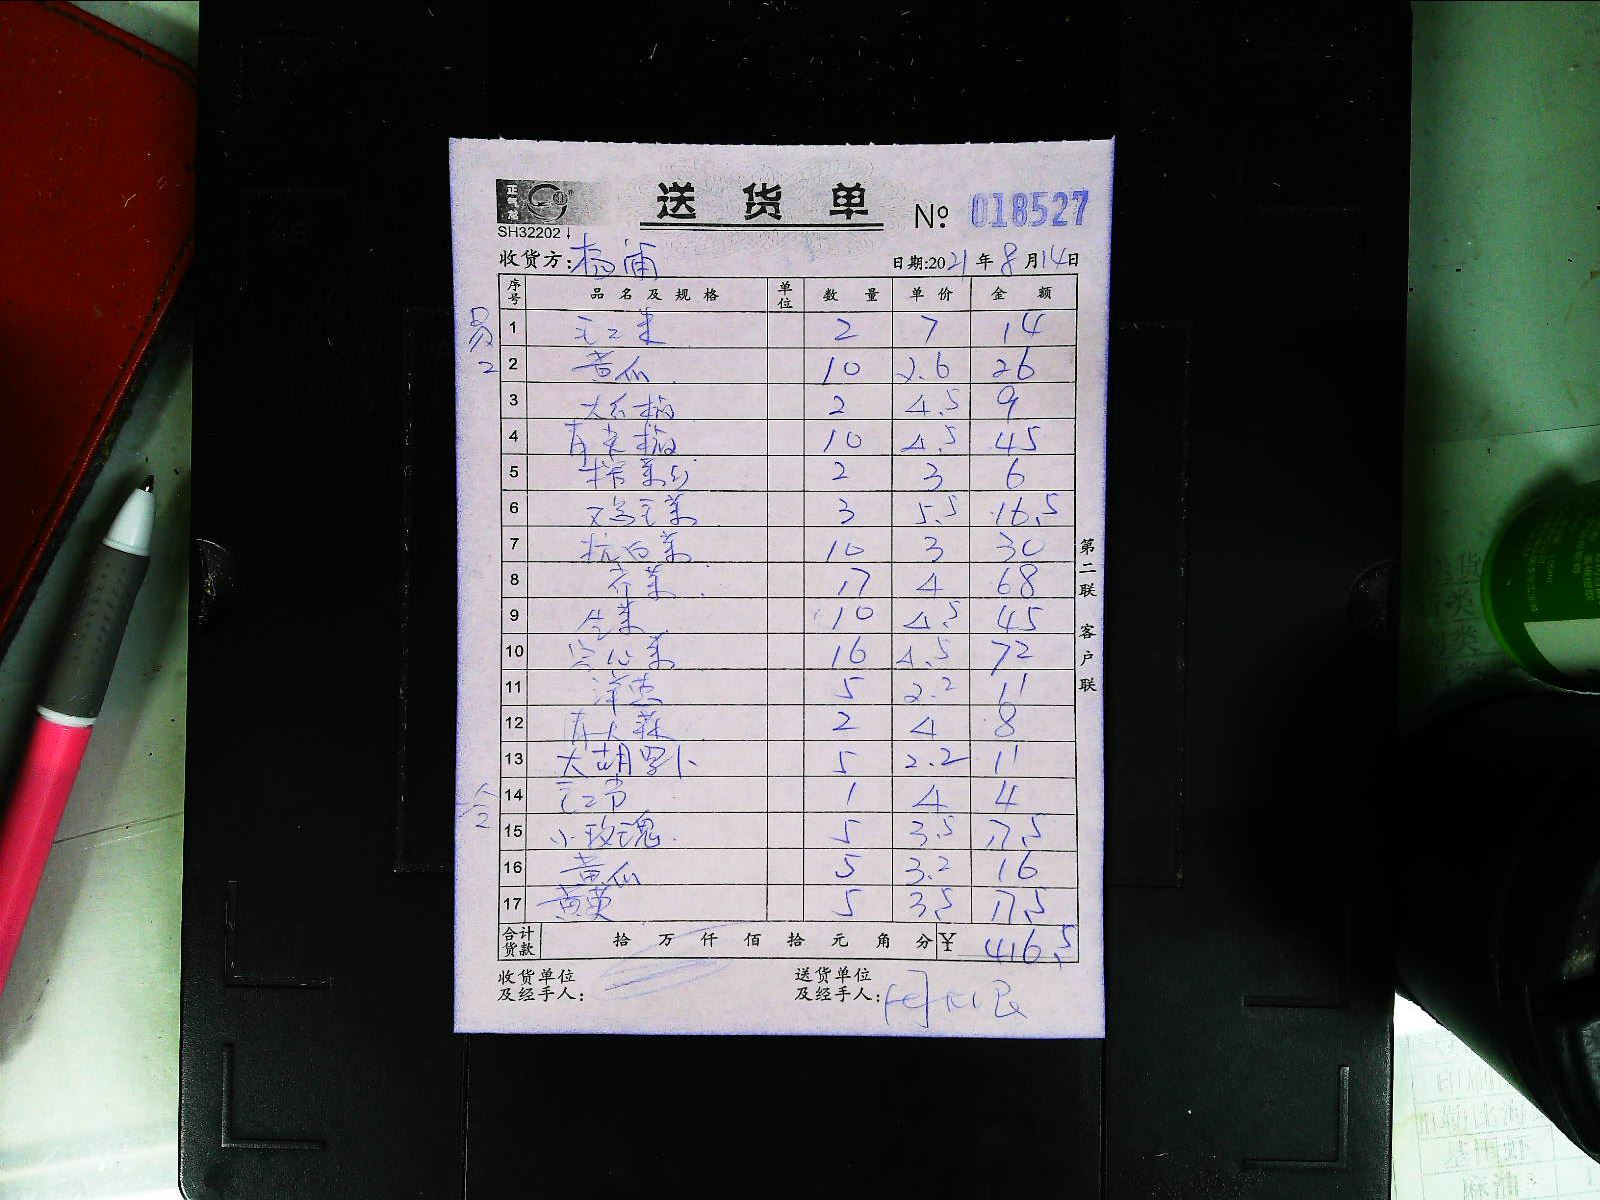 正气龙
SH32202
送货单
№ 018527
收货方: 杨浦
日期:2021年8月14日
序号 品名及规格 单位 数量 单价 金额
易2
1 2 7 14
2 黄瓜 10 2.6 26
3 大石椒 2 4.5 9
4 青尖椒 10 4.5 45
5 榨菜丝 2 3 6
6 3 5.5 16.5
7 杭白菜 10 3 30
8 17 4 68
9 生菜 10 4.5 45
10 空心菜 16 4.5 72
11 洋葱 5 2.2 11
12 青大蒜 2 4 8
13 大胡罗卜 5 2.2 11
14 1 4 4
15 小玫瑰 5 3.5 17.5
16 黄瓜 5 3.2 16
17 黄英 5 3.5 17.5
合计货款 拾万仟佰拾元角分 ¥ 416.5
收货单位及经手人:
送货单位及经手人:
第二联 客户联